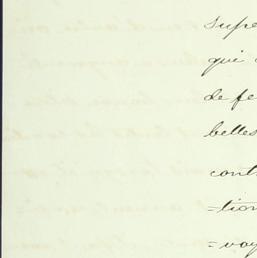 supe
qui
de fe
belles
cont
=tion
=voy